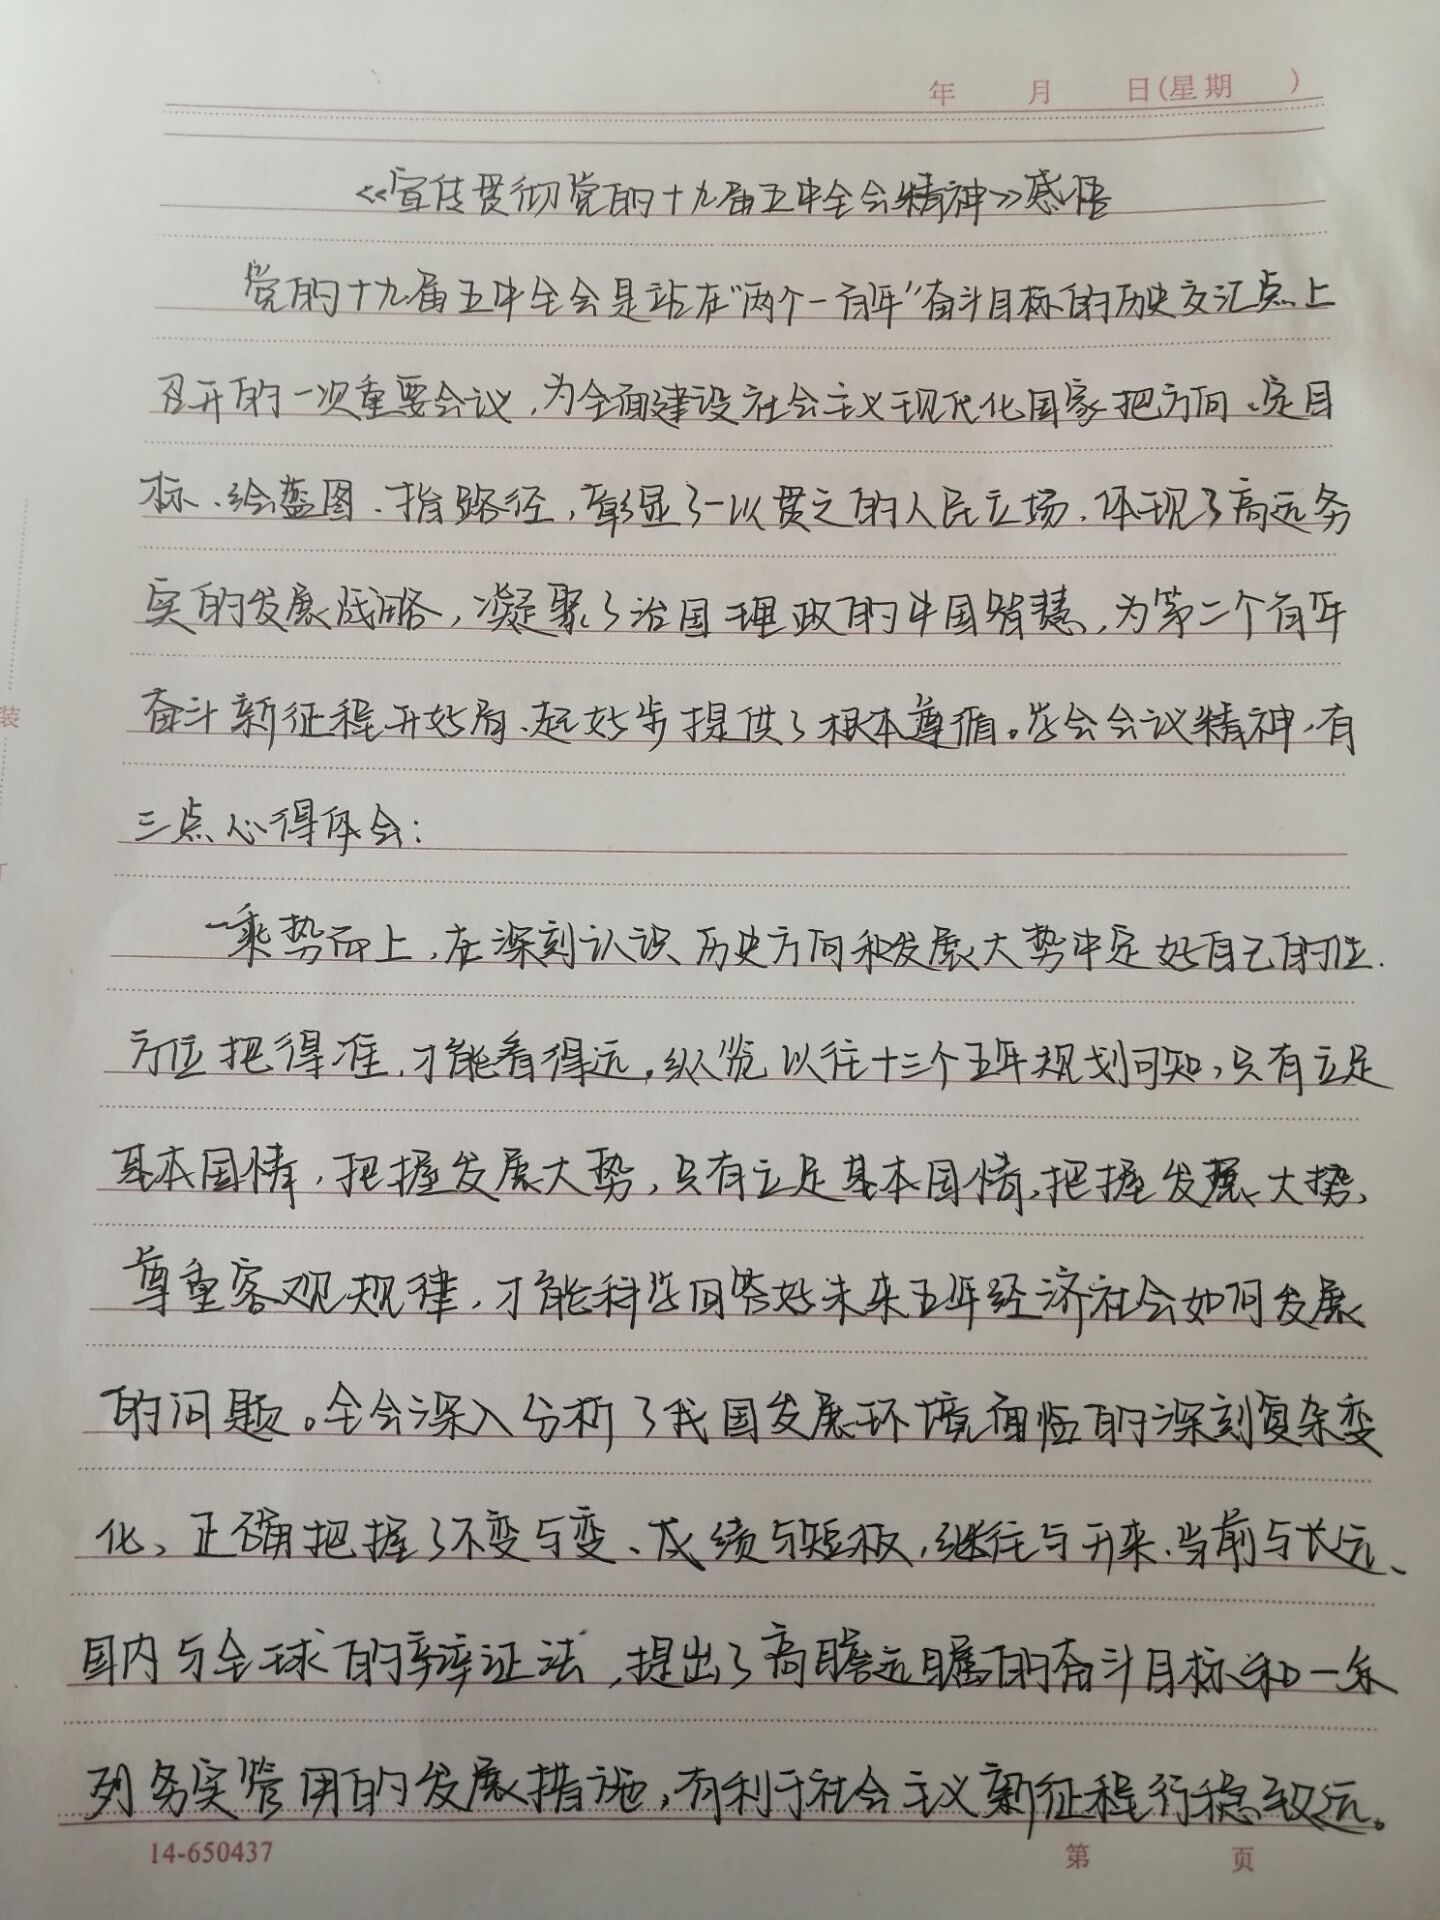 年 月 日(星期 )
《宣传贯彻党的十九届五中全会精神》感悟
党的十九届五中全会是站在"两个一百年"奋斗目标的历史交汇点上
召开的一次重要会议,为全面建设社会主义现代化国家把方向、定目
标、绘蓝图、指路径,彰显了一以贯之的人民立场,体现了高远务
实的发展战略,凝聚了治国理政的中国智慧,为第二个百年
奋斗新征程开好局、起好步提供了根本遵循。学会会议精神,有
三点心得体会:
一乘势而上,在深刻认识历史方向和发展大势中定好自己的位.
方位把得准,才能看得远。纵览以往十三个五年规划可知,只有立足
基本国情,把握发展大势,只有立足基本国情,把握发展大势,
尊重客观规律,才能科学回答好未来五年经济社会如何发展
的问题。全会深入分析了我国发展环境面临的深刻复杂变
化、正确把握了不变与变、成绩与短板,继往与开来、当前与长远、
国内与全球的辩证法,提出了高瞻远瞩的奋斗目标和一系
列务实管用的发展措施,有利于社会主义新征程行稳致远。
14-650437 第 页
装